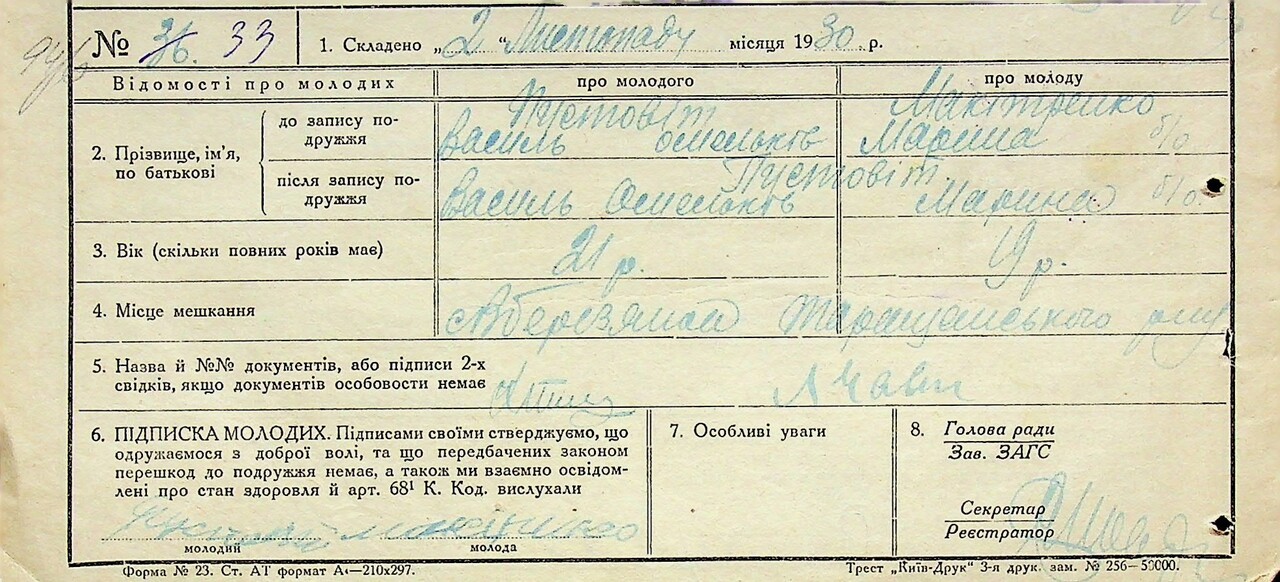 № 36. 33
1. Складено „2 “ Листопаду місяця 1930 р.
Відомості про молодих
про молодого
про молоду
2. Прізвище, ім’я, по батькові
до запису подружжя
Пустовіт
Василь Омельков
Макітренко
Марина б/о
після запису подружжя
Пустовіт
Василь Омельков
Марина б/о
3. Вік (скільки повних років має)
21 р.
19 р.
4. Місце мешкання
Таращанського
5. Назва й №№ документів, або підписи 2-х
свідків, якщо документів особовости немає
6. ПІДПИСКА МОЛОДИХ. Підписами своїми стверджуємо, що
одружаємося з доброї волі, та що передбачених законом
перешкод до подружжя немає, а також ми взаємно освідом-
лені про стан здоровля й арт. 68¹ К. Код. вислухали
молодий
молода
7. Особливі уваги
8. Голова ради
Зав. ЗАГС
Секретар
Реєстратор
Форма № 23. Ст. АТ формат А₄—210х297.
Трест „Київ-Друк“ 3-я друк. зам. № 256—50000.